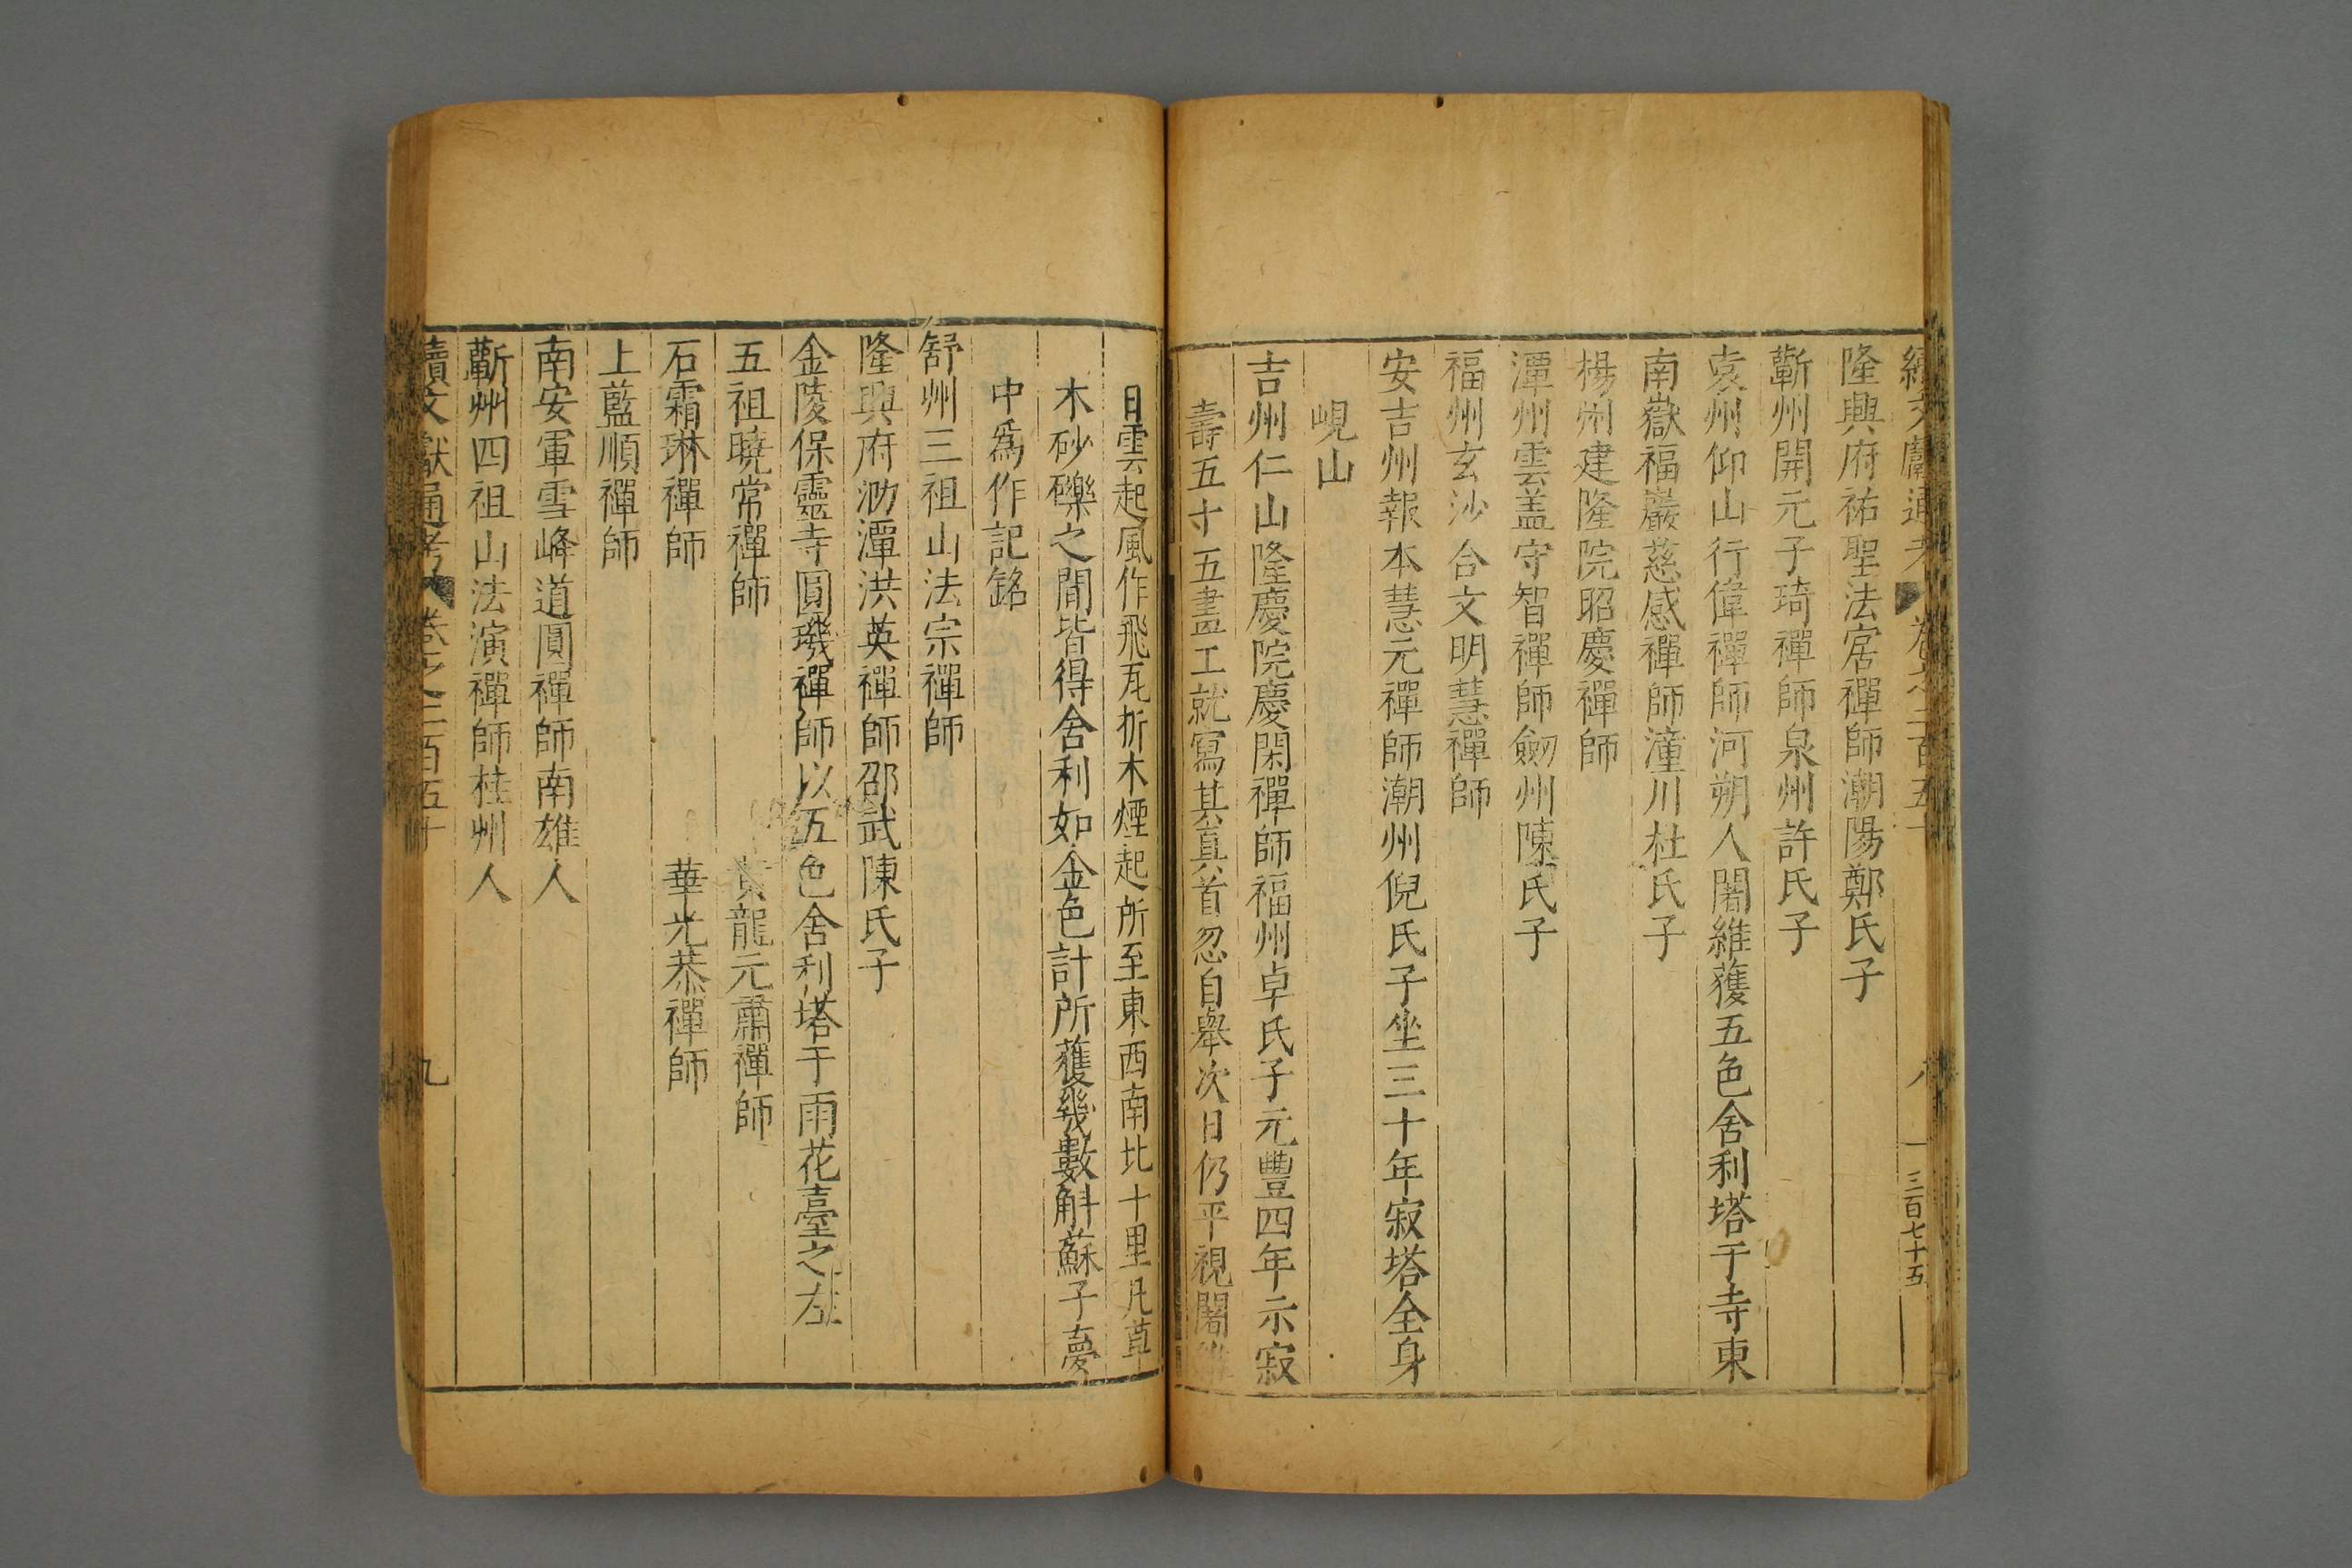 續文獻通考 卷之二百五十 八 三百七十五
隆興府祐聖法宮禪師潮陽鄭氏子
蘄州開元子琦禪師泉州許氏子
袁州仰山行偉禪師河朔人闍維獲五色舍利塔于寺東
南嶽福嚴慈感禪師潼川杜氏子
楊州建隆院昭慶禪師
潭州雲盖守智禪師劒州陳氏子
福州玄沙合文明慧禪師
安吉州報本慧元禪師潮州倪氏子坐三十年寂塔全身
峴山
吉州仁山隆慶院慶閑禪師福州卓氏子元豐四年示寂
壽五寸五畫工就寫其真首忽自舉次日仍平視闍維
日雲起風作飛瓦折木煙起所至東西南北十里凡草
木砂礫之間皆得舍利如金色計所獲幾數斛蘇子夢
中爲作記銘
舒州三祖山法宗禪師
隆興府泐潭洪英禪師邵武陳氏子
金陵保靈寺圓璣禪師以五色舍利塔于雨花臺之左
五祖曉常禪師 黃龍元肅禪師
石霜琳禪師 華光恭禪師
上藍順禪師
南安軍雪峰道圓禪師南雄人
蘄州四祖山法演禪師桂州人
續文獻通考 卷之二百五十 九